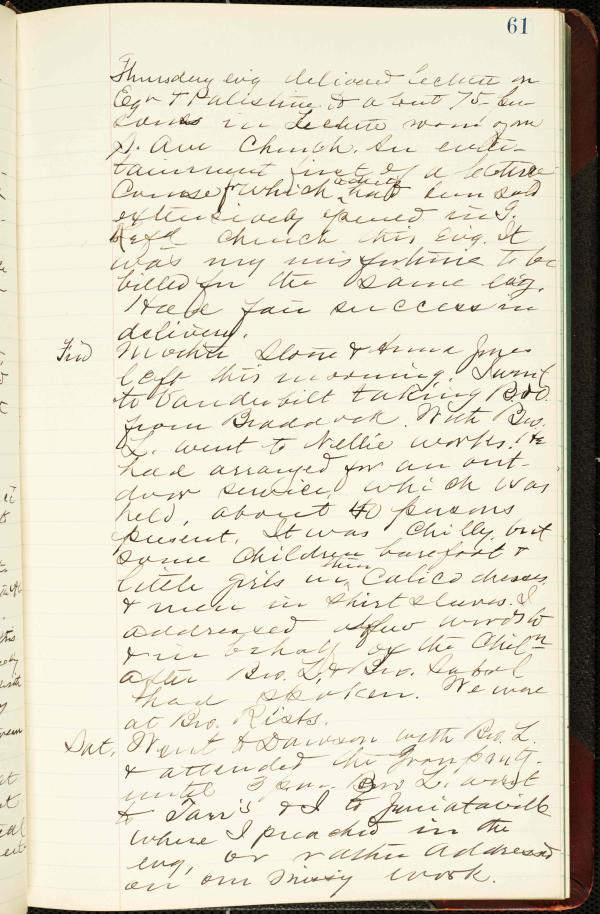 61
Thursday evg delivered lecture on
Egp & Palestine to about 75 per-
sons in Lecture room of our
J. Ave Church. An enter-
tainment first of a lecture
Course for which tickets had been sold
extensively opened in G.
Refd Church this evg. It
was my misfortune to be
billed for the same evg.
Had fair success in
delivery.
Frid Mother Stone & Anna Jones
left this morning. I went
to Vanderbilt taking B&O.
from Braddock. With Bro.
L. went to Nellie works. He
had arranged for an out-
door service, which was
held, about 40 persons
present. It was Chilly, but
some children barefoot &
little girls in thin Calico dresses
& men in shirt sleeves. I
addressed a few words to
& in behalf of the Chiln
after Bro. L. & Bro. Sabol
had spoken. We were
at Bro. Rists.
Sat. Went to Dawson with Bro. L.
& attended the
until 3 p.m. Bro L. went
to Tarr's & I to Juniataville
where I preached in the
evg, or rather addressed
on our Missy work.